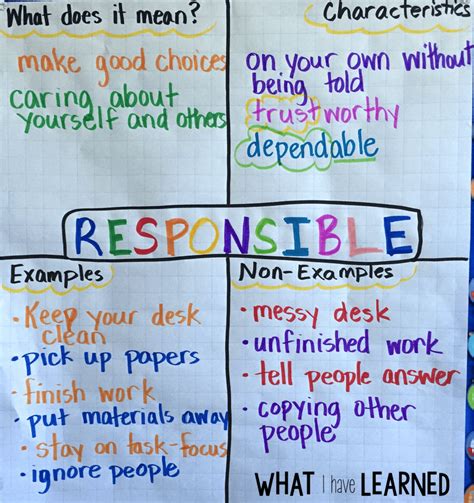 What does it mean?
make good choices
caring about
yourself and others
Characteristics
on your own without
being told
trustworthy
dependable
RESPONSIBLE
Examples
• Keep your desk
clean
• pick up papers
• finish work
• put materials away
• stay on task-focus
• ignore people
Non-Examples
• messy desk
• unfinished work
• tell people answer
• copying other
people
WHAT I have LEARNED